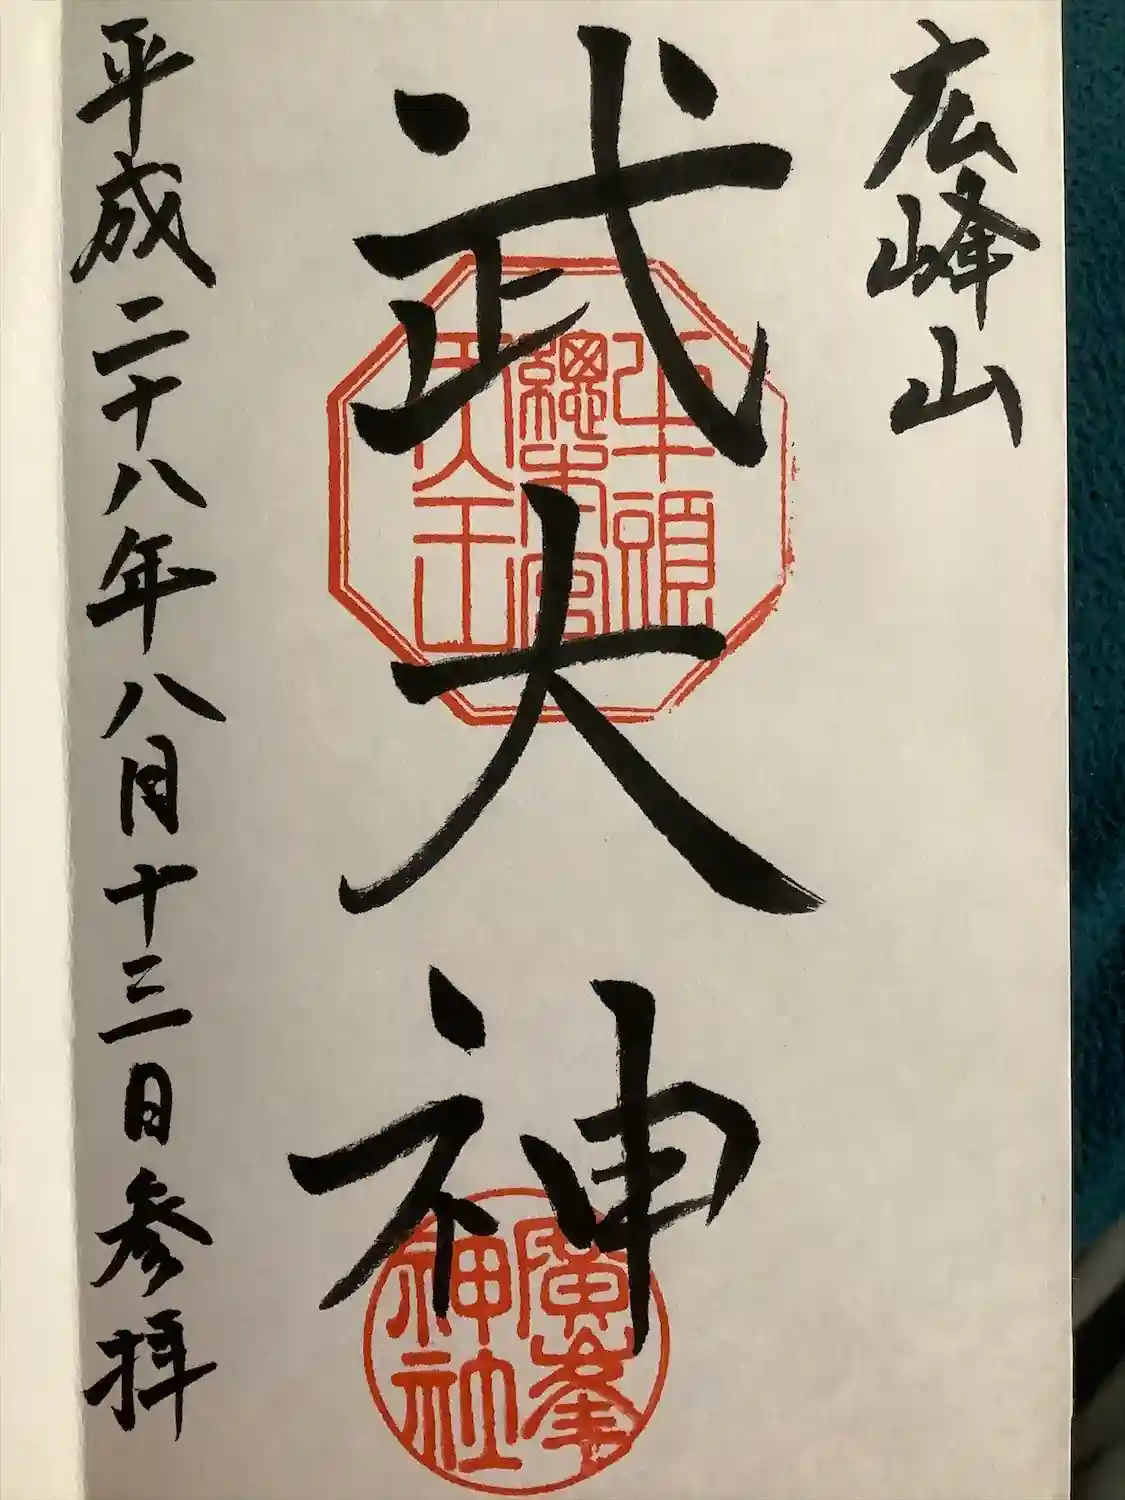 広峰山
武大神
牛頭
總本宮
天王
廣峯
神社
平成二十八年八月十三日参拝